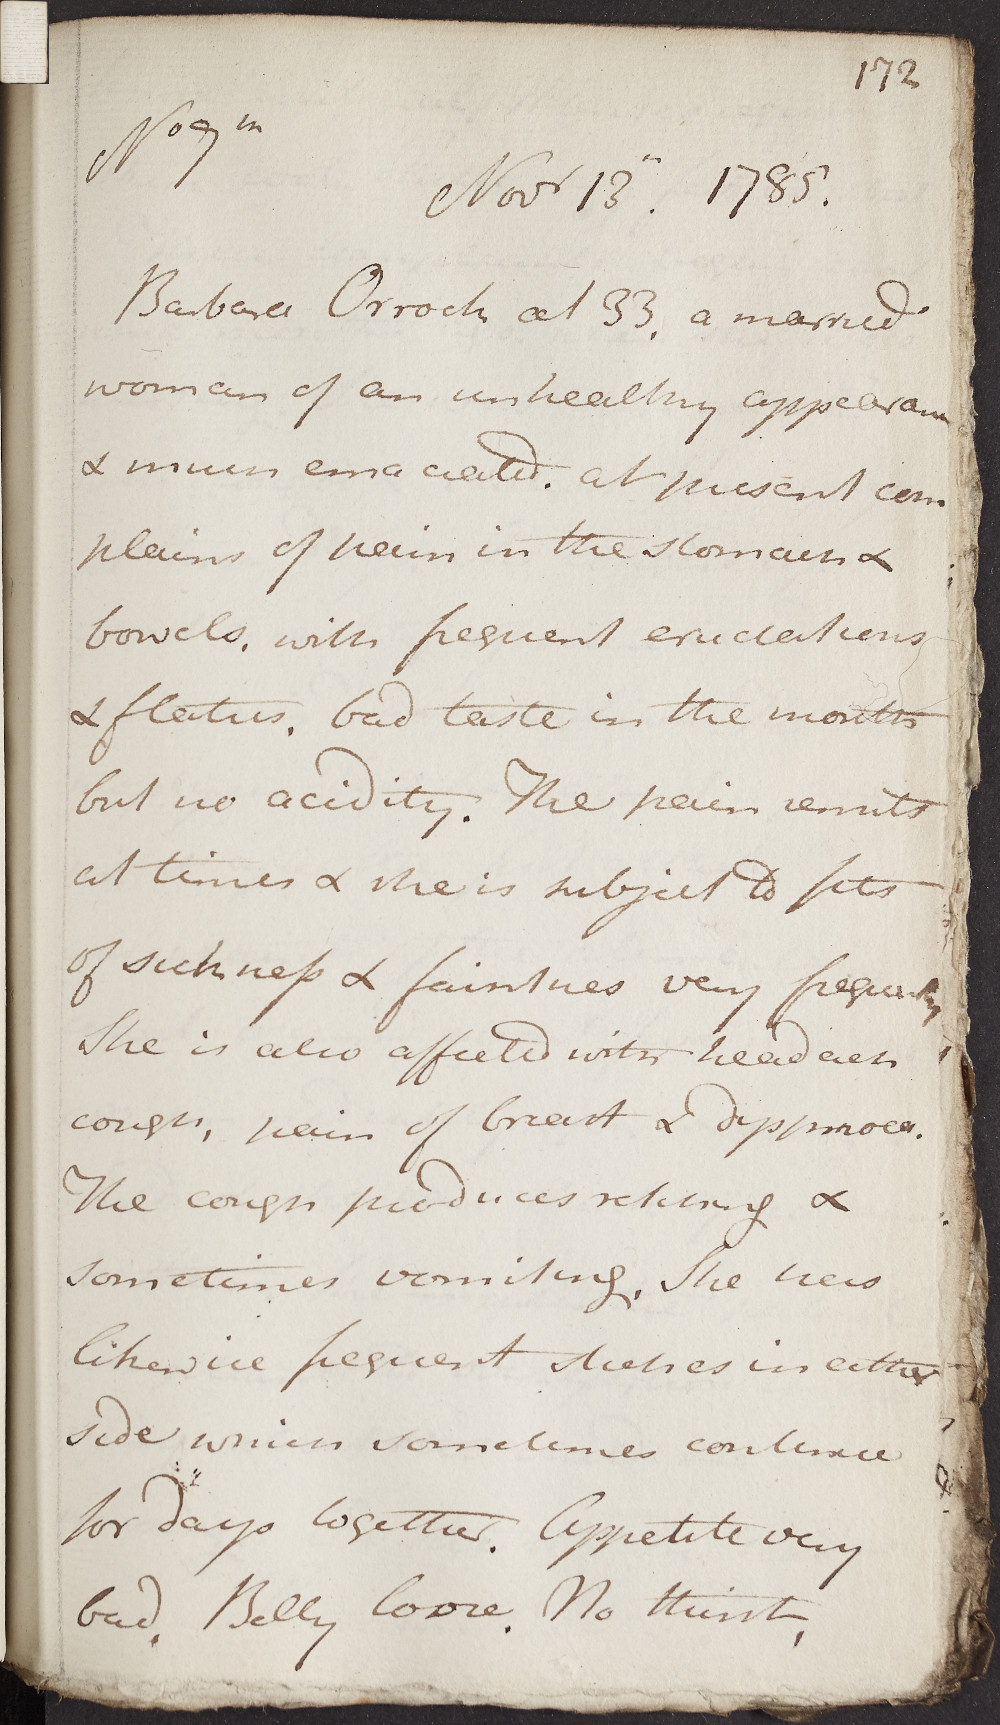 172
No 9 m
Novr 13". 1785.
Barbara Orrock æt 33, a married
woman of an unhealthy appearan
& much emaciated. at present com
plains of pain in the stomach &
bowels, with frequent eructations
& flatus, bad taste in the mouth
but no acidity. The pain remits
at times & she is subject to fits
of sickness & faintnes very frequently
She is also affected with headach
cough, pain of breast & dyspnoea.
The cough produces retching &
sometimes vomiting, She has
likewise frequent stiches in either
side which sometimes continue
for days together. Appetite very
bad, Belly loose. No thirst,